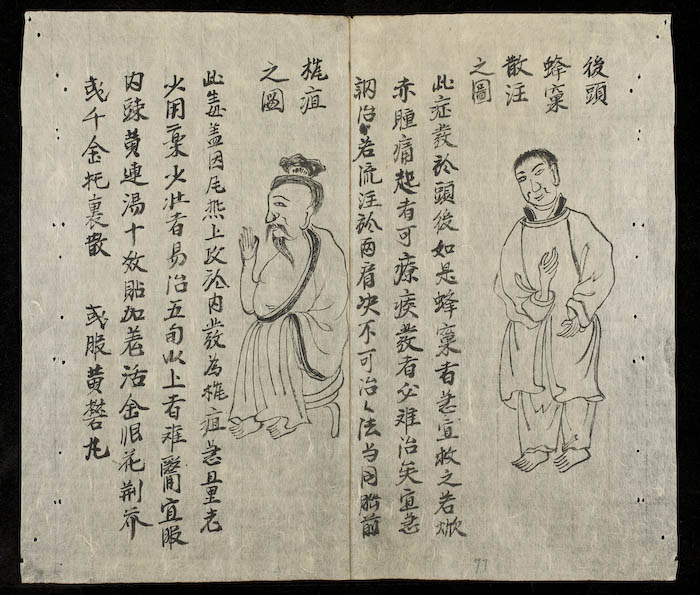 後頭
蜂窠
散注
之圖
此症發於頭後如是蜂窠者急宜救之若焮
赤腫痛起者可療痰發者必難治矣宜急
調治若流注於兩肩决不可治〻法与同腦前
椎疽
之圖
此毒盖因尾然上攻於内發為椎疽急且量老
少用藥少壯者易治五旬以上者難醫宜服
内疎黄連湯十效貼加羗活金银花荆芥
或千金托裏散 或服黄礬丸
77